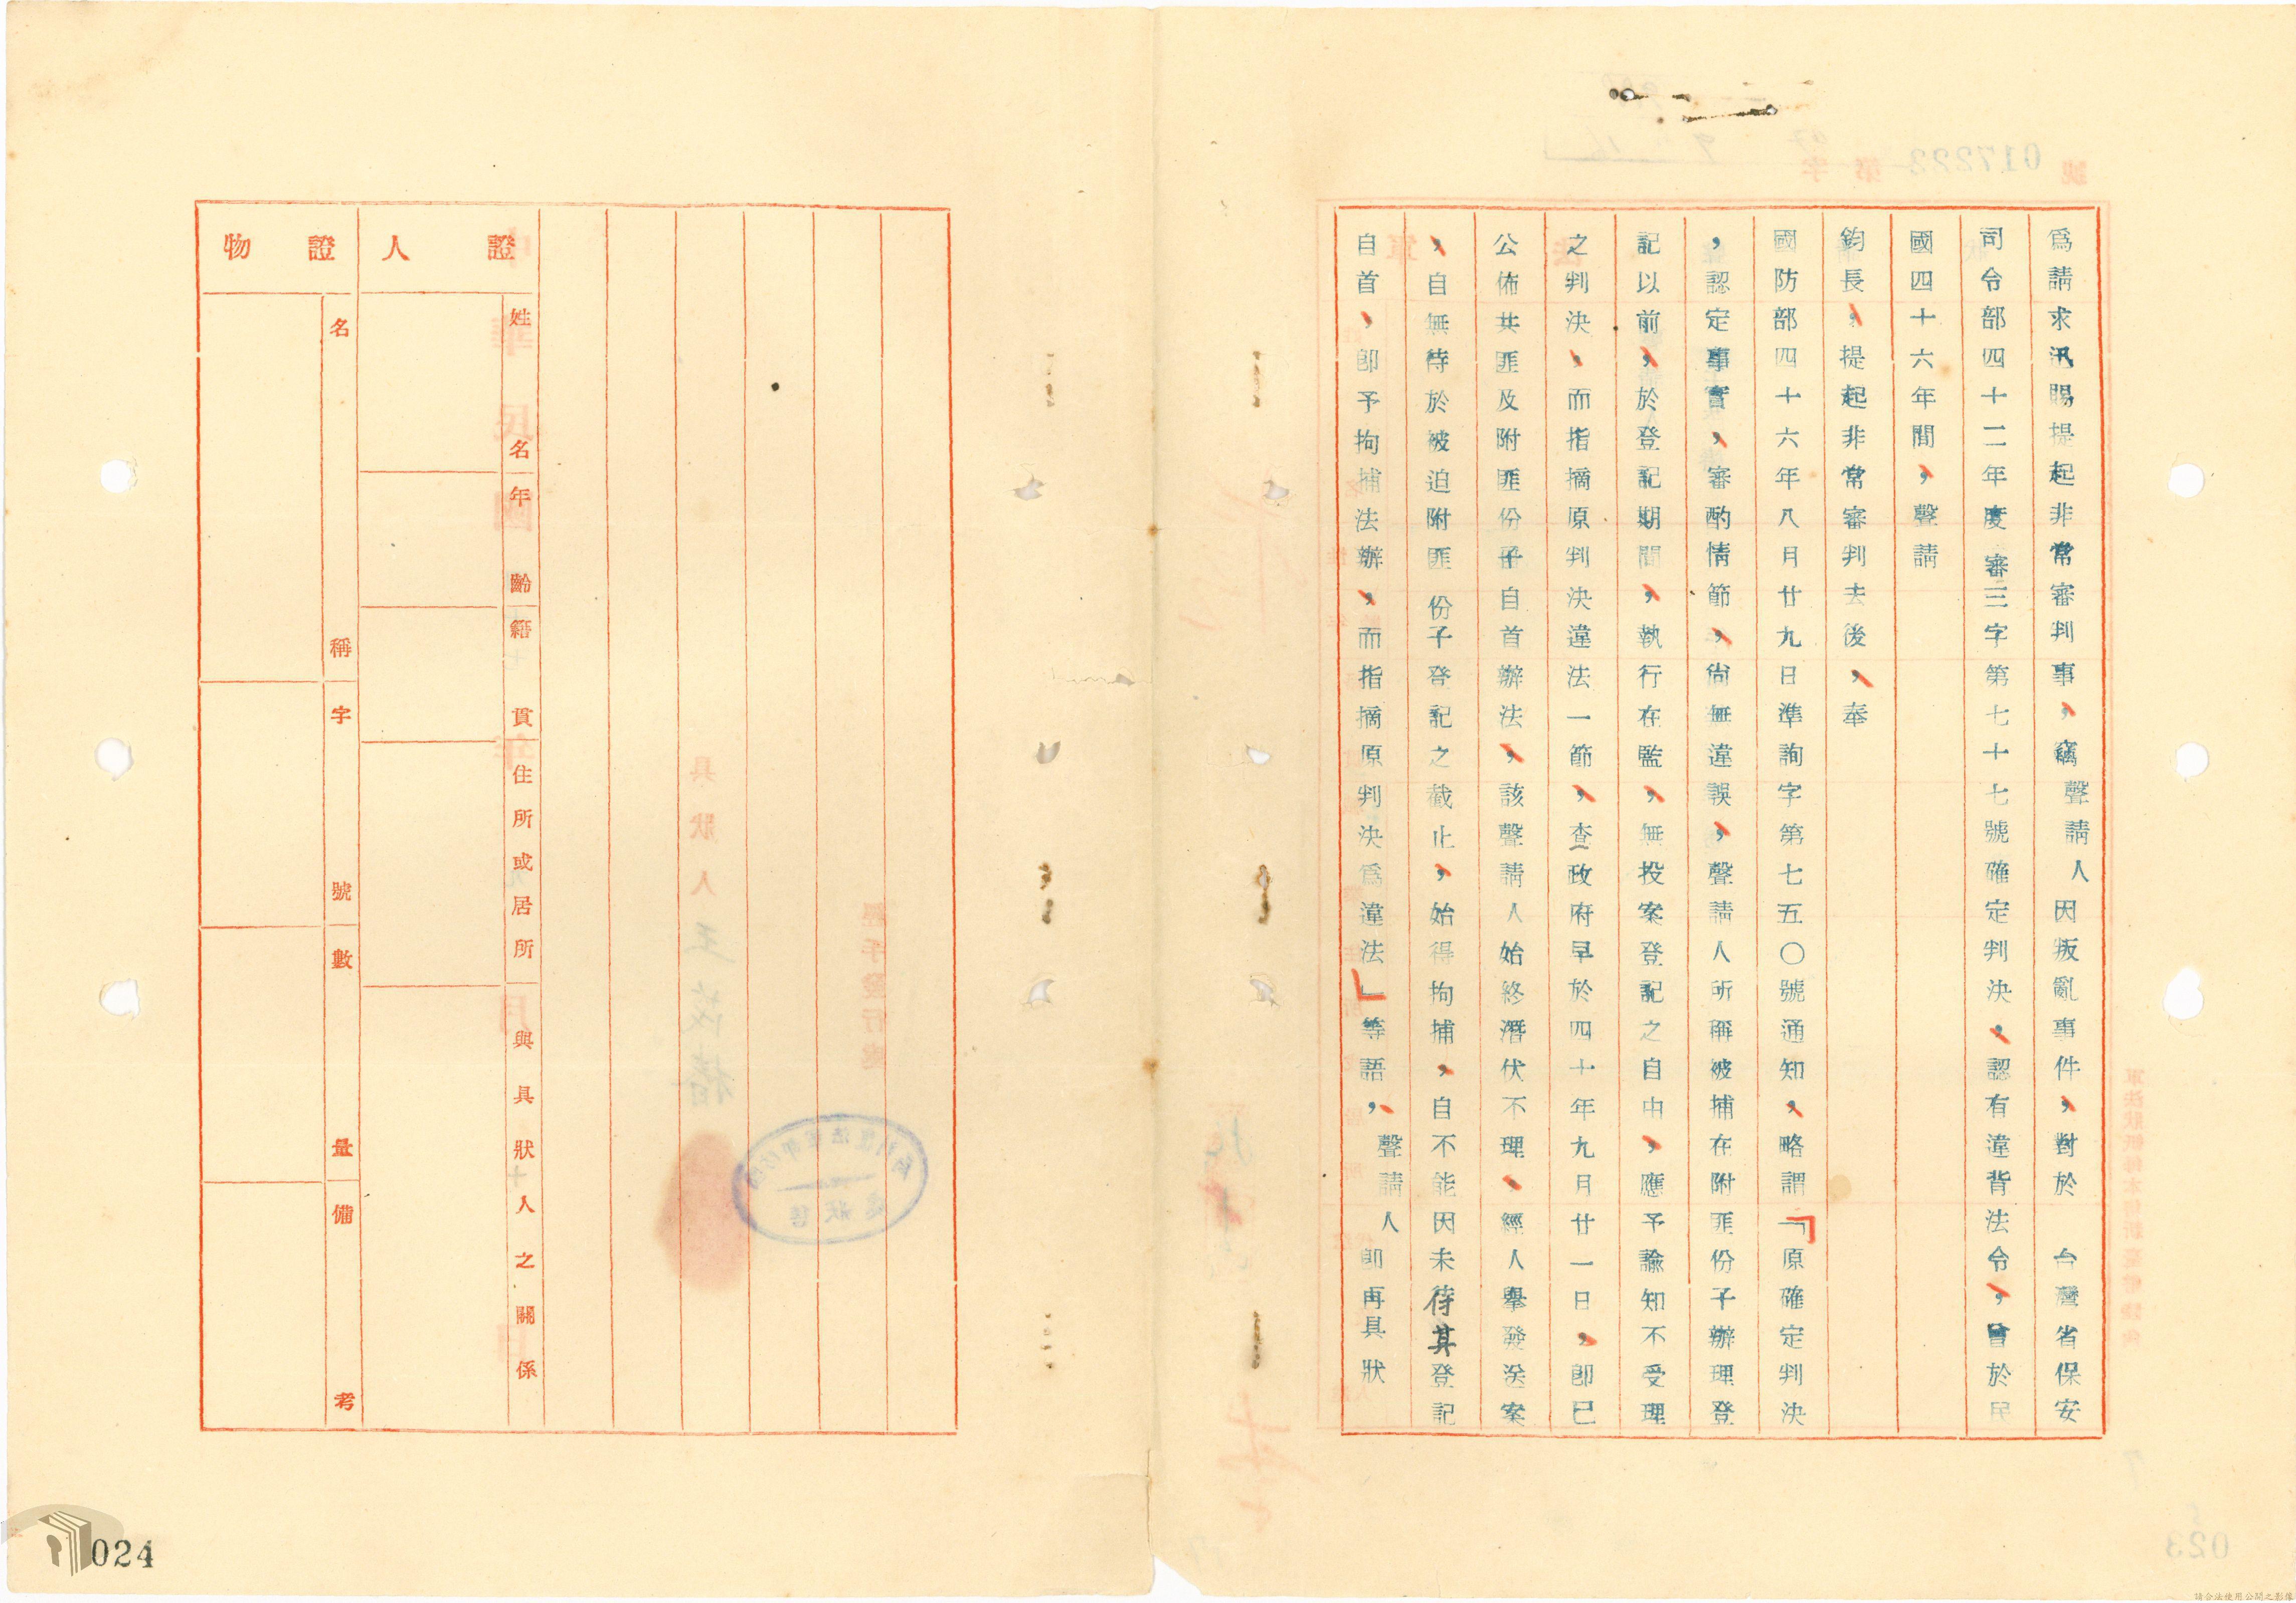 爲請求汛賜提起非常審判事，竊聲請人因叛亂事件，對於　台灣省保安
司令部四十二年度審三字第七十七號確定判決，認有違背法令，曾於民
國四十六年間，聲請
鈞長，提起非常審判去後，奉
國防部四十六年八月廿九日準詢字第七五〇號通知，略謂「原確定判決
，認定事實，審酌情節，尚無違誤，聲請人所稱被捕在附匪份子辦理登
記以前，於登記期間，執行在監，無投案登記之自由，應予諭知不受理
之判決，而指摘原判決違法一節，查政府早於四十年九月廿一日，卽已
公佈共匪及附匪份子自首辦法，該聲請人始終潛伏不理，經人舉發送案
，自無待於被迫附匪份子登記之截止，始得拘捕，自不能因未待其登記
自首，卽予拘捕法辦，而指摘原判決爲違法」等語，聲請人卽再具狀
證人
姓名
年齡
籍貫
住所或居所
與具狀人之關係
證物
名稱
字號
數量
備考
024